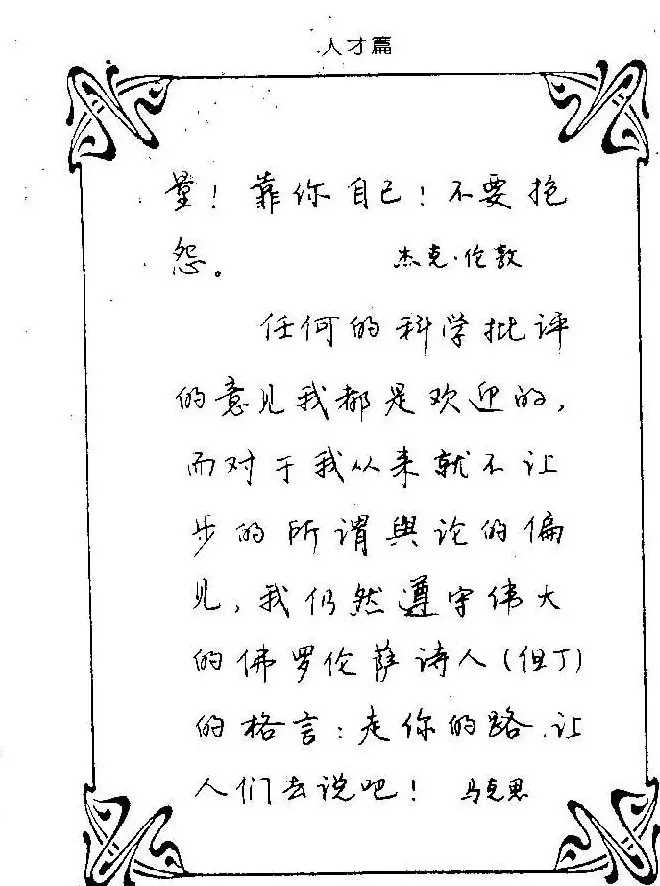 人才篇
量！靠你自己！不要抱
怨。 杰克·伦敦
任何的科学批评
的意见我都是欢迎的，
而对于我从来就不让
步的所谓舆论的偏
见，我仍然遵守伟大
的佛罗伦萨诗人(但丁)
的格言：走你的路，让
人们去说吧！ 马克思